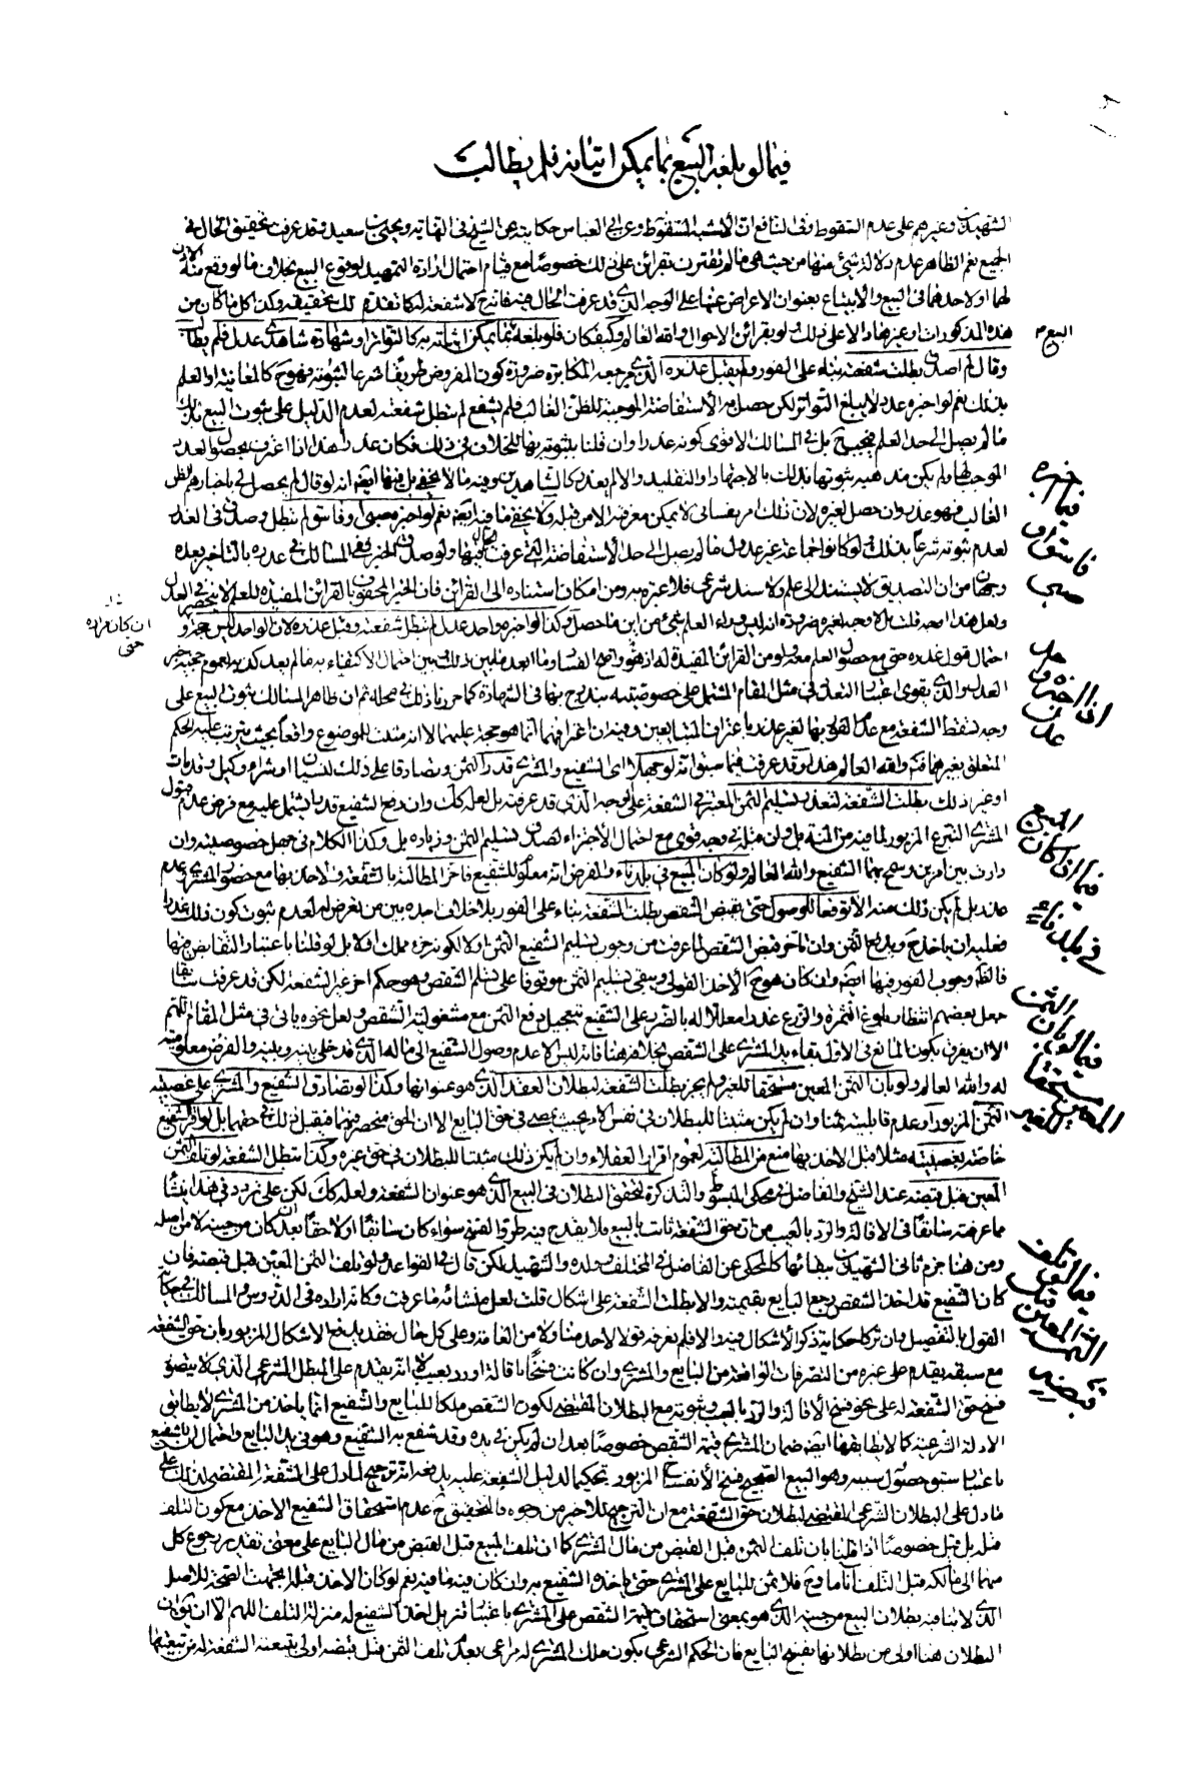 فيما لو بلغه البيع بما يمكن اثباته به فلم يطالب
الشهيدين وغيرهم على عدم السقوط وفي النافع ان الاشبه السقوط وعن ابي العباس حكايته عن الشيخ في النهاية ويحيى بن سعيد وقد عرفت تحقيق الحال في
الجميع نعم الظاهر عدم دلالة شيء منها من حيث هي ما لم تقترن بقرائن على ذلك خصوصا مع قيام احتمال ارادة التمهيد لوقوع البيع بخلاف ما لو وقع منه الاذن
لهما او لاحدهما في البيع والابتياع بعنوان الاعراض عنها على الوجه الذي قد عرفت الحال فيه فانه ح لا شفعة له كما تقدم لك تحقيقه وكذا كل ما كان من
هذه المذكورات او غيرها دالا على ذلك ولو بقرائن الاحوال والله العالم وكيف كان فلو بلغه بما يمكن اثباته به كالتواتر او شهادة شاهدي عدل فلم يطالب
وقال لم اصدق بطلت شفعته بناء على الفور ولم يقبل عذره الذي مرجعه المكابرة ضرورة كون المفروض طريقا شرعا لثبوته فهو ح كالمعاينة او العلم
بذلك نعم لو اخبره عدد لا يبلغ التواتر لكن حصل به الاستفاضة الموجبة للظن الغالب فلم يشفع لم تبطل شفعته لعدم الدليل على ثبوت البيع بذلك
ما لم يصل الى حد العلم فيجب ح بل في المسالك الاقوى كونه عذرا وان قلنا بثبوته بها للخلاف في ذلك فكان عذرا
الموجب لها ولم يكن مذهبه ثبوتها بذلك بالاجتهاد او التقليد والا لم يعذر كالشاهدين وفيه ما لا يخفى بل فيها ايضا انه لو قال لم يحصل لي باخبارهم الظن
الغالب فهو عذر وان حصل لغيره لان ذلك امر نفساني لا يمكن معرفته الا من قبله ولا يخفى ما فيه ايضا نعم لو اخبره صبي او فاسق لم تبطل وصدق في العذر
لعدم ثبوته شرعا بذلك ولو كانوا جماعة غير عدول ما لم يصل الى حد الاستفاضة التي عرفت الحال فيها ولو صدق المخبر ففي المسالك في عذره بالتاخير بعده
وجهان من ان التصديق لا يستند الى علم ولا سند شرعي فلا عبرة به ومن امكان استناده الى القرائن فان الخبر المحفوف بالقرائن المفيدة للعلم لا ينحصر في العدل
ولعل هذا اوجه قلت بل لا وجه لغيره ضرورة انه ليس وراء العلم شيء من اين ما حصل وكذا لو اخبره واحد عدل لم تبطل شفعته وقبل عذره لان الواحد ليس حجة و
احتمال قبول عذره حتى مع حصول العلم معه ولو من القرائن المفيدة له
العدل والذي يقوى اعتبار التعدد في مثل المقام المشتمل على خصومة
وجه تسقط الشفعة مع عدم القيام بها لغير عذر باعتراف المتبايعين وفيه ان اعترافهما انما هو حجة عليهما لا انه مثبت للموضوع واقعا بحيث يترتب عليه الحكم
المتعلق بغيرهما فتم والله العالم هذا وقد عرفت فيما سبق انه لو جهلا اي الشفيع والمشتري قدر الثمن وتصادقا على ذلك لنسيان او شراء وكيل وقد مات
او غير ذلك بطلت الشفعة لتعذر تسليم الثمن المعتبر في الشفعة على الوجه الذي قد عرفته بل لعله كك وان دفع الشفيع قدرا يشتمل عليه مع فرض عدم قبول
المشتري التبرع المزبور لما فيه من المنة
دارت بين امرين وسمح بهما الشفيع والله العالم ولو كان المبيع في بلد ناء والفرض انه معلوم للشفيع فاخر المطالبة بالشفعة والاخذ بها مع حضور المشتري عدم
عنده بل لم يكن ذلك منه الا توقعا للوصول حتى يقبض الشقص بطلت الشفعة بناء على الفور بلا خلاف اجده بين من تعرض له لعدم ثبوت كون ذلك عذرا
فعليه ان ياخذ ح ويدفع الثمن وان تاخر قبض الشقص لما عرفت من وجوب تسليم الشفيع الثمن اولا لكونه جزء مملك او لا بل لو قلنا باعتبار التقابض فيها
فالمتجه وجوب الفور فيها ايضا وان كان هو ح الاخذ القولي ويبقى تسليم الثمن موقوفا على تسلم الشقص وهو حكم اخر غير الشفعة لكن قد عرفت سابقا
جعل بعضهم انتظار بلوغ الثمرة والزرع عذرا معللا له بالضرر على الشفيع بتعجيل دفع الثمن مع مشغولية الشقص ولعل نحوه ياتي في مثل المقام اللهم
الا ان يفرق بكون المانع في الاول بقاء يد المشتري على الشقص بخلافه هنا فانه ليس الا عدم وصول الشفيع الى ماله الذي قد خلى بينه وبينه والفرض معلوميته
له والله العالم ولو بان الثمن المعين مستحقا للغير ولم يجز بطلت الشفعة لبطلان العقد الذي هو عنوانها وكذا لو تصادق الشفيع والمشتري على غصبية
الثمن المزبور او عدم قابليته ثمنا وان لم يكن مثبتا للبطلان في نفس الامر بحيث يمضي في حق البايع الا ان الحق منحصر فيهما فيقبل ذلك في حقهما بل لو اقر الشفيع
خاصة بغصبيته مثلا قبل الاخذ بها منع من المطالبة لعموم اقرار العقلاء وان لم يكن ذلك مثبتا للبطلان في حق غيره وكذا تبطل الشفعة لو تلف الثمن
المعين قبل قبضه عند الشيخ والفاضل في محكي المبسوط والتذكرة لتحقق البطلان في البيع الذي هو عنوان الشفعة ولعله كك لكن على تردد في هذا ينشأ
مما عرفته سابقا في الاقالة والرد بالعيب من ان حق الشفعة ثابت بالبيع فلا يقدح فيه طرو الفسخ سواء كان سابقا او لاحقا بعد ان كان من حينه لا من اصله
ومن هنا جزم ثاني الشهيدين ببقائها كالمحكي عن الفاضل في المختلف وولده والشهيد لكن قال في القواعد ولو تلف الثمن المعين قبل قبضه فان
كان الشفيع قد اخذ الشقص رجع البايع بقيمته والا بطلت الشفعة على اشكال قلت لعل منشأه ما عرفت وكانه اراده في الدروس والمسالك في حكاية
القول بالتفصيل وان تركا حكاية ذكر الاشكال فيه والا فلم نعرفه قولا لاحد منا ولا من العامة وعلى كل حال فقد يدفع الاشكال المزبور بان حق الشفعة
مع سبقه يقدم على غيره من التصرفات الواقعة من البايع والمشتري وان كانت فسخا باقالة او رد بعيب لا انه يقدم على المبطل الشرعي الذي لا يتصور
فسخ حق الشفعة له على نحو فسخ الاقالة والرد بالعيب وثبوته مع البطلان المقتضي لكون الشقص ملكا للبايع والشفيع انما ياخذ من المشتري لا يطابق
الادلة الشرعية كما لا يطابقها ايضا ضمان المشتري قيمة الشقص خصوصا بعد ان لم يكن في يده وقد شفع به الشفيع وهو في يد البايع واحتمال ان الشفيع
باعتبار سبق حصول سببه وهو البيع الصحيح فسخ الانفساخ المزبور تحكيما لدليل الشفعة عليه يدفعه انه ترجيح لما دل على الشفعة المقتضي لذلك على
ما دل على البطلان الشرعي المقتضي لبطلان حق الشفعة مع ان الترجيح للاخر من وجوه فالتحقيق ح عدم استحقاق الشفيع الاخذ مع كون التلف
قبله بل قيل خصوصا اذا قلنا بان تلف الثمن قبل القبض من مال المشتري كما ان تلف المبيع قبل القبض من مال البايع على معنى تقدير رجوع كل
منهما الى مالكه قبل التلف آنا ما وح فلا ثمن للبايع على المشتري حتى ياخذه الشفيع به وان كان فيه ما فيه نعم لو كان الاخذ قبله اتجهت الصحة للاصل
الذي لا ينافيه بطلان البيع من حينه الذي هو بمعنى استحقاق قيمة الشقص على المشتري باعتبار تنزيل اخذ الشفيع له منزلة التلف اللهم الا ان يق ان
البطلان هنا اولى من بطلانها بفسخ البايع فان الحكم الشرعي بكون ملك المشتري له مراعى بعدم تلف الثمن قبل قبضه اولى بتبعية الشفعة له من تبعيتها
البيوع
فيما اخبره
فاسق او
صبي
ان كان مراده
حتى
اذا اخبره
عدل
فيما اذا كان المبيع
في بلد ناء
فيما لو بان الثمن
المعين مستحقا
للغير
فيما لو تلف
الثمن المعين قبل
قبضه